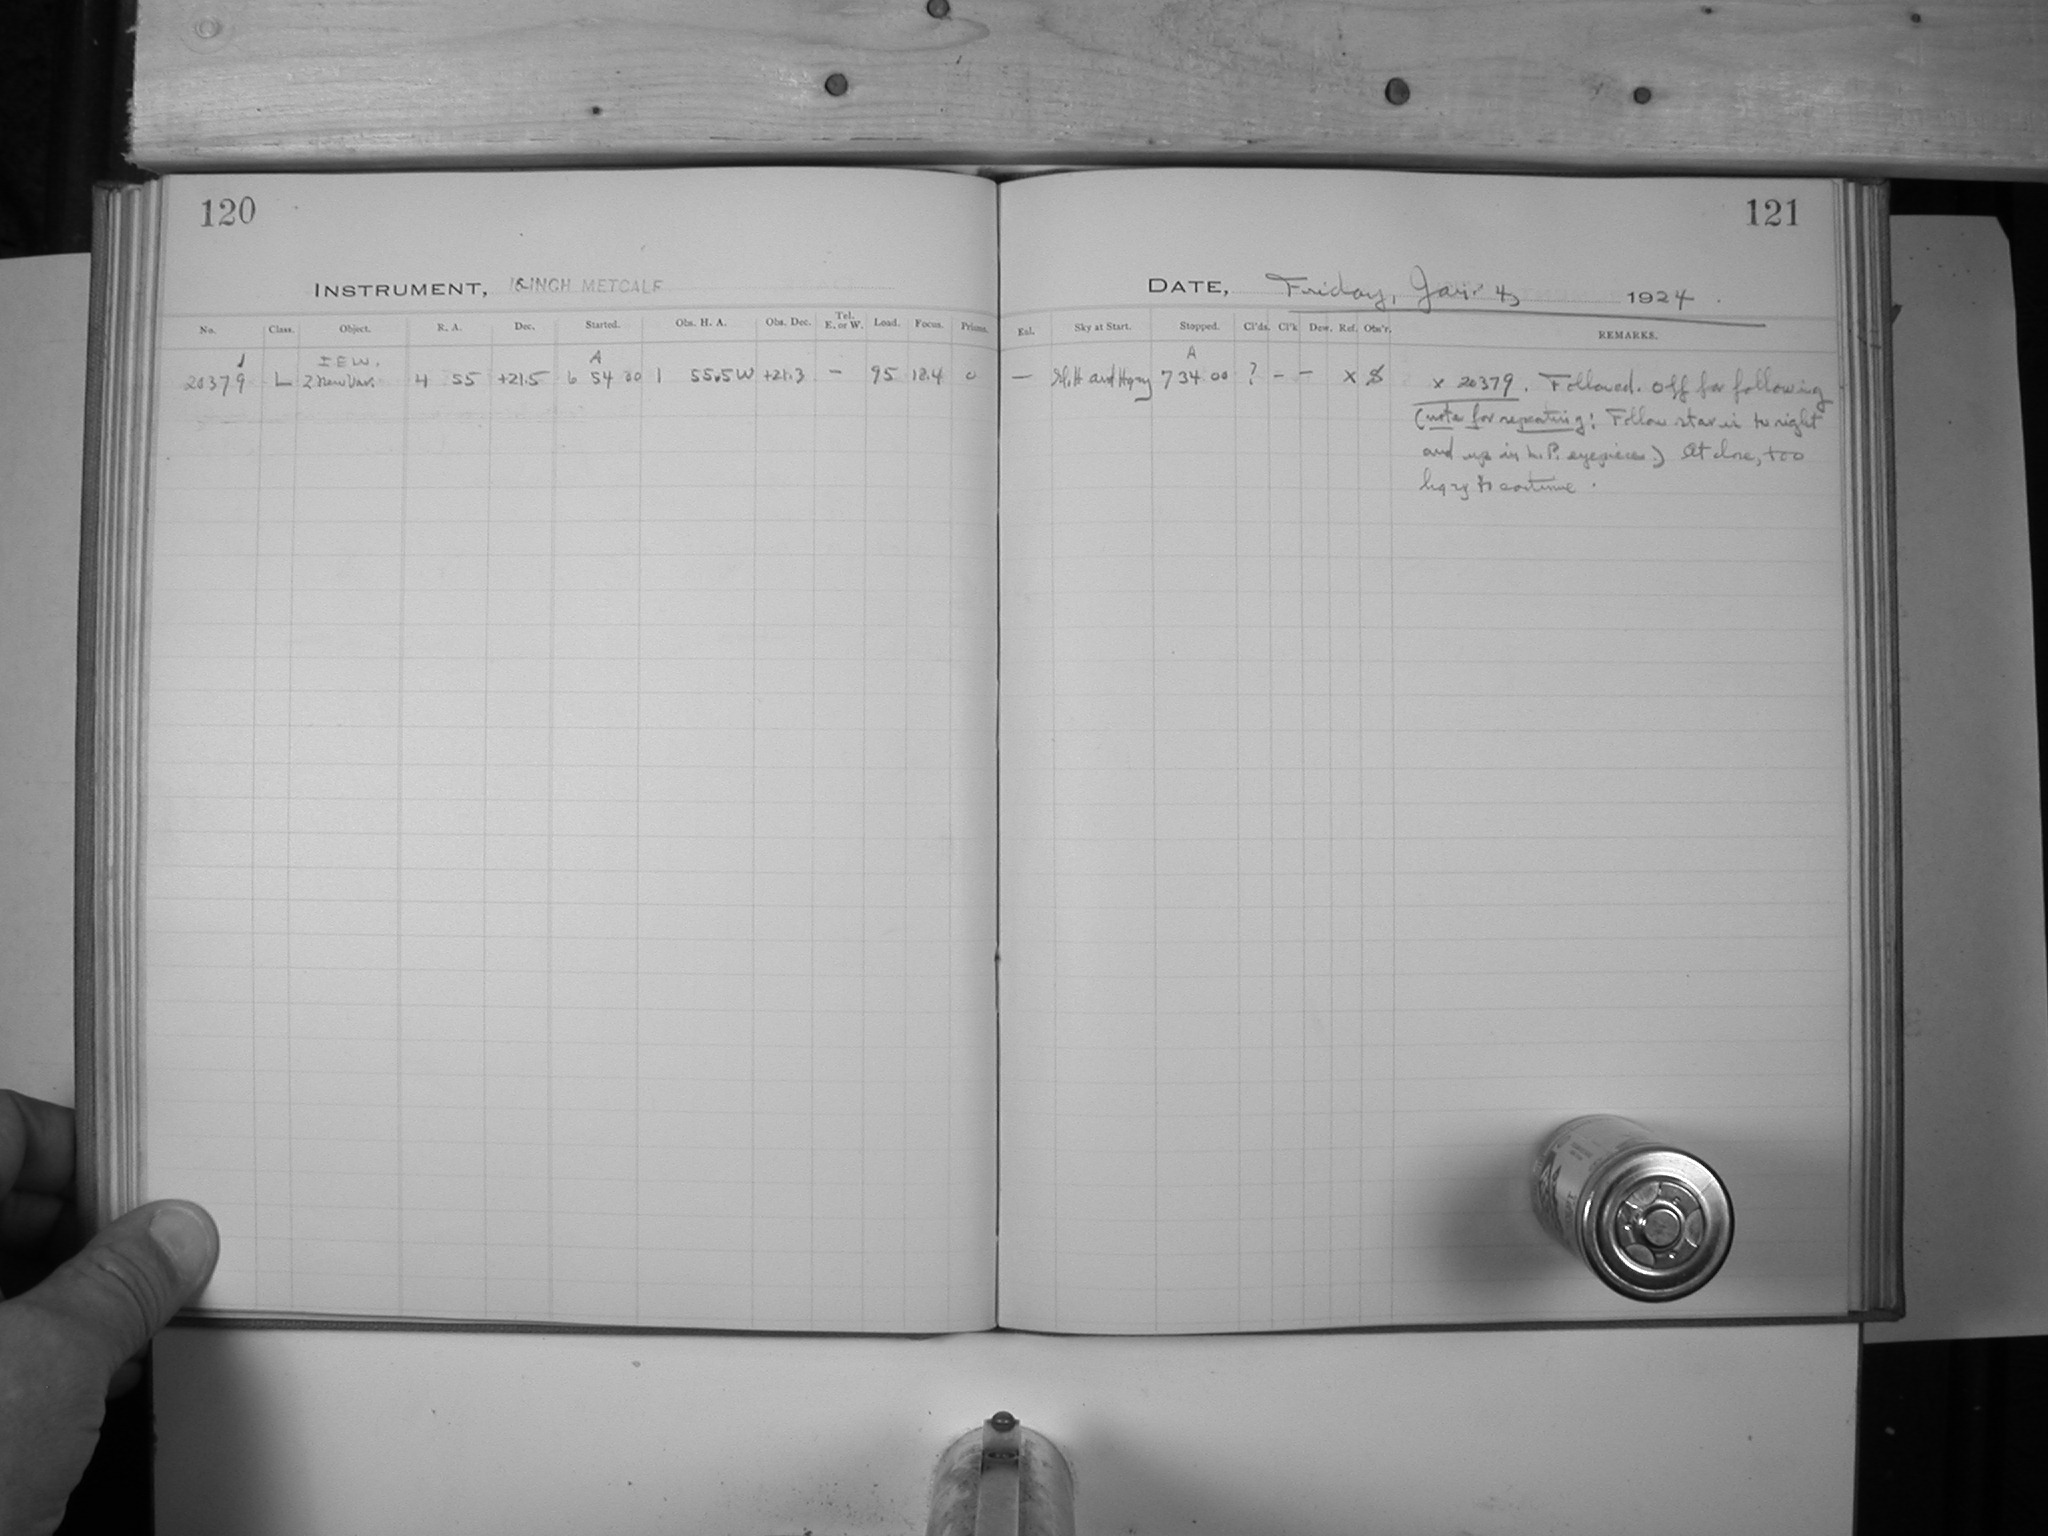 120
INSTRUMENT, 16-INCH METCALF
No. Class. Object. R. A. Dec. Started. Obs. H. A. Obs. Dec. Tel. E. or W. Load. Focus. Prisms.
I.E.W. A
20379 L 2 New Vars. 4 55 +21.5 6 54 00 1 55.5 W +21.3 — 95 18.4 0
121
DATE, Friday, Jan. 4, 1924.
Exl. Sky at Start. Stopped. Cl'ds. Cl'k Dew. Ref. Obs'r. REMARKS.
A
— and Hazy 7 34 00 ? - - x x 20379. Followed. Off for following
(note for repeating: Follow star is to right
and up in L.P. eyepiece.) At close, too
hazy to continue.